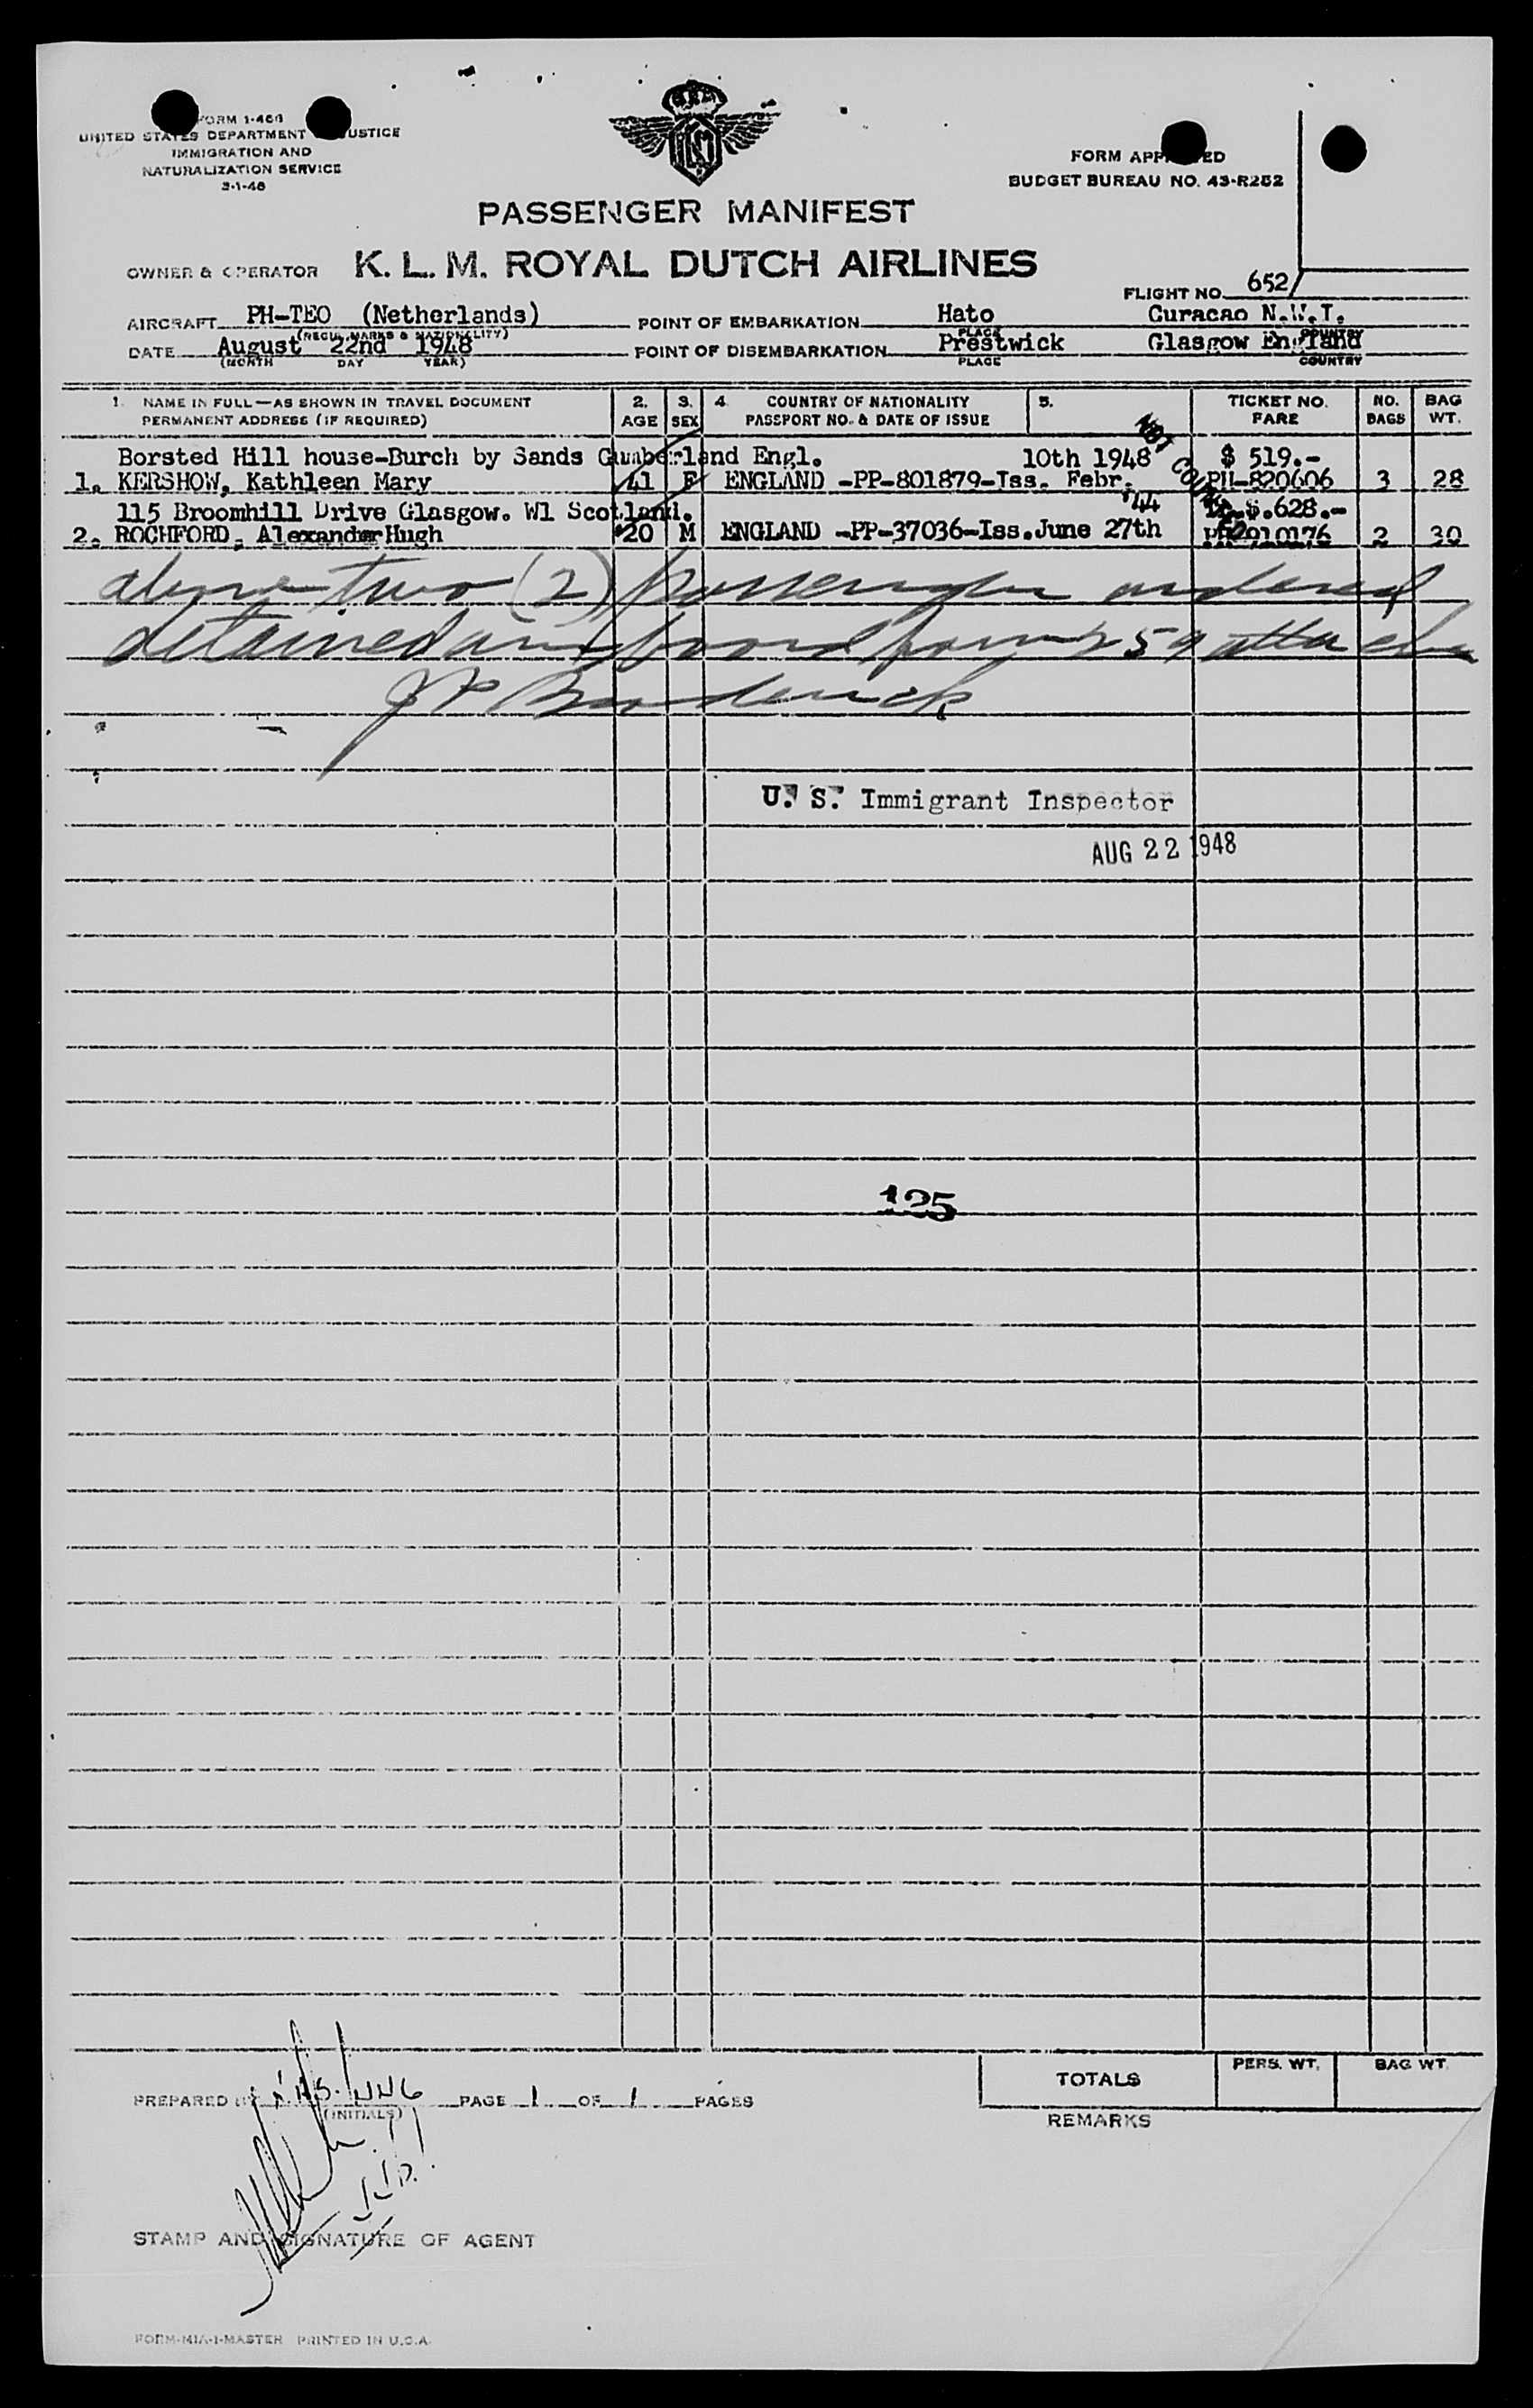 FORM I-466
UNITED STATES DEPARTMENT JUSTICE
IMMIGRATION AND
NATURALIZATION SERVICE
KLM
FORM APP ED
BUDGET BUREAU NO. 43-R252
PASSENGER MANIFEST
OWNER & OPERATOR K. L. M. ROYAL DUTCH AIRLINES
FLIGHT NO. 652/
AIRCRAFT PH-TEO (Netherlands) POINT OF EMBARKATION Hato Curacao N.W.I.
(REGIS. MARKS & NATIONALITY) PLACE COUNTRY
DATE August 22nd 1948 POINT OF DISEMBARKATION Prestwick Glasgow England
(MONTH DAY YEAR) PLACE COUNTRY
1. NAME IN FULL—AS SHOWN IN TRAVEL DOCUMENT 2. 3. 4 COUNTRY OF NATIONALITY 5. TICKET NO. NO. BAG
PERMANENT ADDRESS (IF REQUIRED) AGE SEX PASSPORT NO. & DATE OF ISSUE FARE BAGS WT.
NOT
Borsted Hill house-Burch by Sands Cumberland Engl. 10th 1948 $ 519.-
1. KERSHOW, Kathleen Mary 41 F ENGLAND -PP-801879-Iss. Febr. PH-820606 3 28
115 Broomhill Drive Glasgow. W1 Scotland. '44 $.628.-
2. ROCHFORD, Alexander Hugh 20 M ENGLAND -PP-37036-Iss.June 27th 2 30
above two (2) passengers ordered
detained on board form 259 attached
J P Broderick
U. S. Immigrant Inspector
AUG 22 1948
125
TOTALS PERS. WT. BAG WT.
PREPARED BY PAGE 1 OF 1 PAGES
(INITIALS)
REMARKS
STAMP AND SIGNATURE OF AGENT
FORM-MIA-1-MASTER PRINTED IN U.S.A.